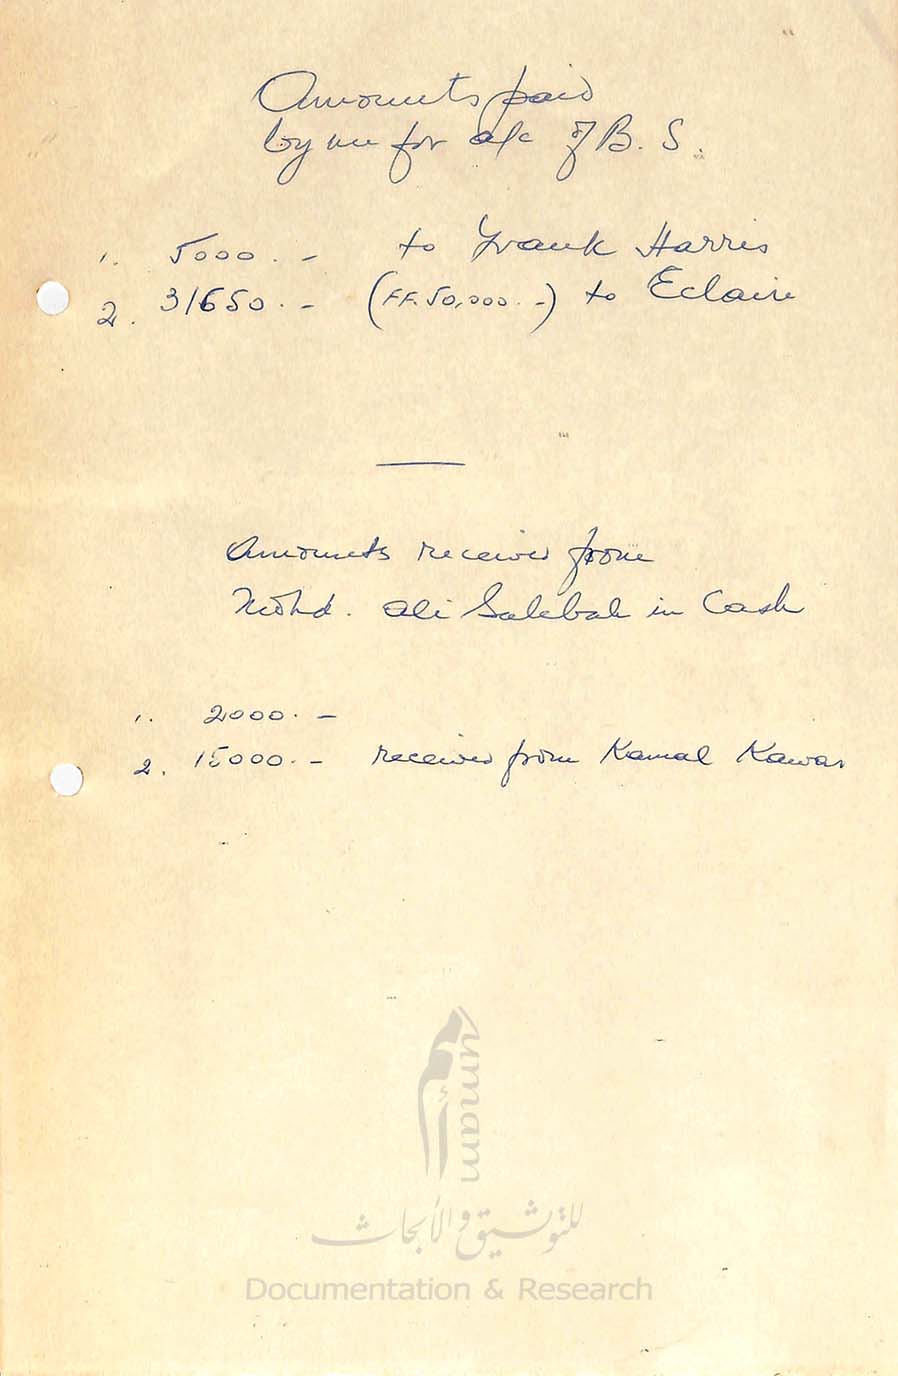 Amounts paid
by me for a/c of B. S.
1. 5000. - to Frank Harris
2. 31650. - (FF. 50,000. -) to Eclair
Amounts received from
Mohd. Ali Salebah in Cash
1. 2000. -
2. 15000. - received from Kamal Kawar
أمم
umam
للتوثيق والأبحاث
Documentation & Research